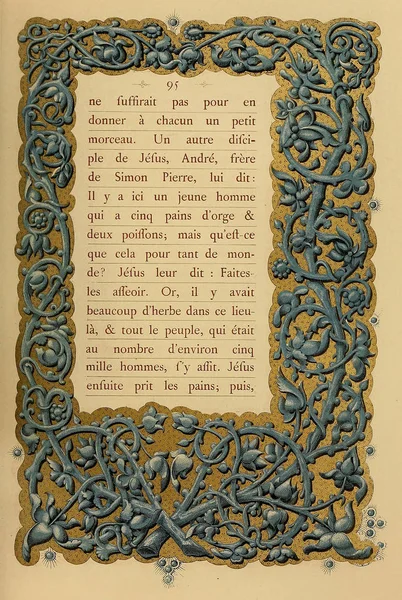 95
ne ſuffirait pas pour en
donner à chacun un petit
morceau. Un autre diſci-
ple de Jéſus, André, frère
de Simon Pierre, lui dit:
Il y a ici un jeune homme
qui a cinq pains d'orge &
deux poiſſons; mais qu'eſt-ce
que cela pour tant de mon-
de? Jéſus leur dit : Faites-
les aſſeoir. Or, il y avait
beaucoup d'herbe dans ce lieu-
là, & tout le peuple, qui était
au nombre d'environ cinq
mille hommes, ſ'y aſſit. Jéſus
enſuite prit les pains; puis,